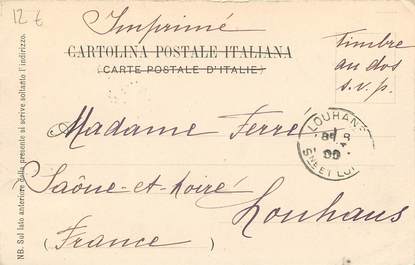 12 €
Imprimé
CARTOLINA POSTALE ITALIANA
(CARTE POSTALE D'ITALIE)
Timbre
au dos
s.v.p.
Madame Ferré
LOUHANS
SNE ET LOI
Saône-et-Loire
Louhans
(France)
NB. Sul lato anteriore della presente si scrive soltanto l'indirizzo.